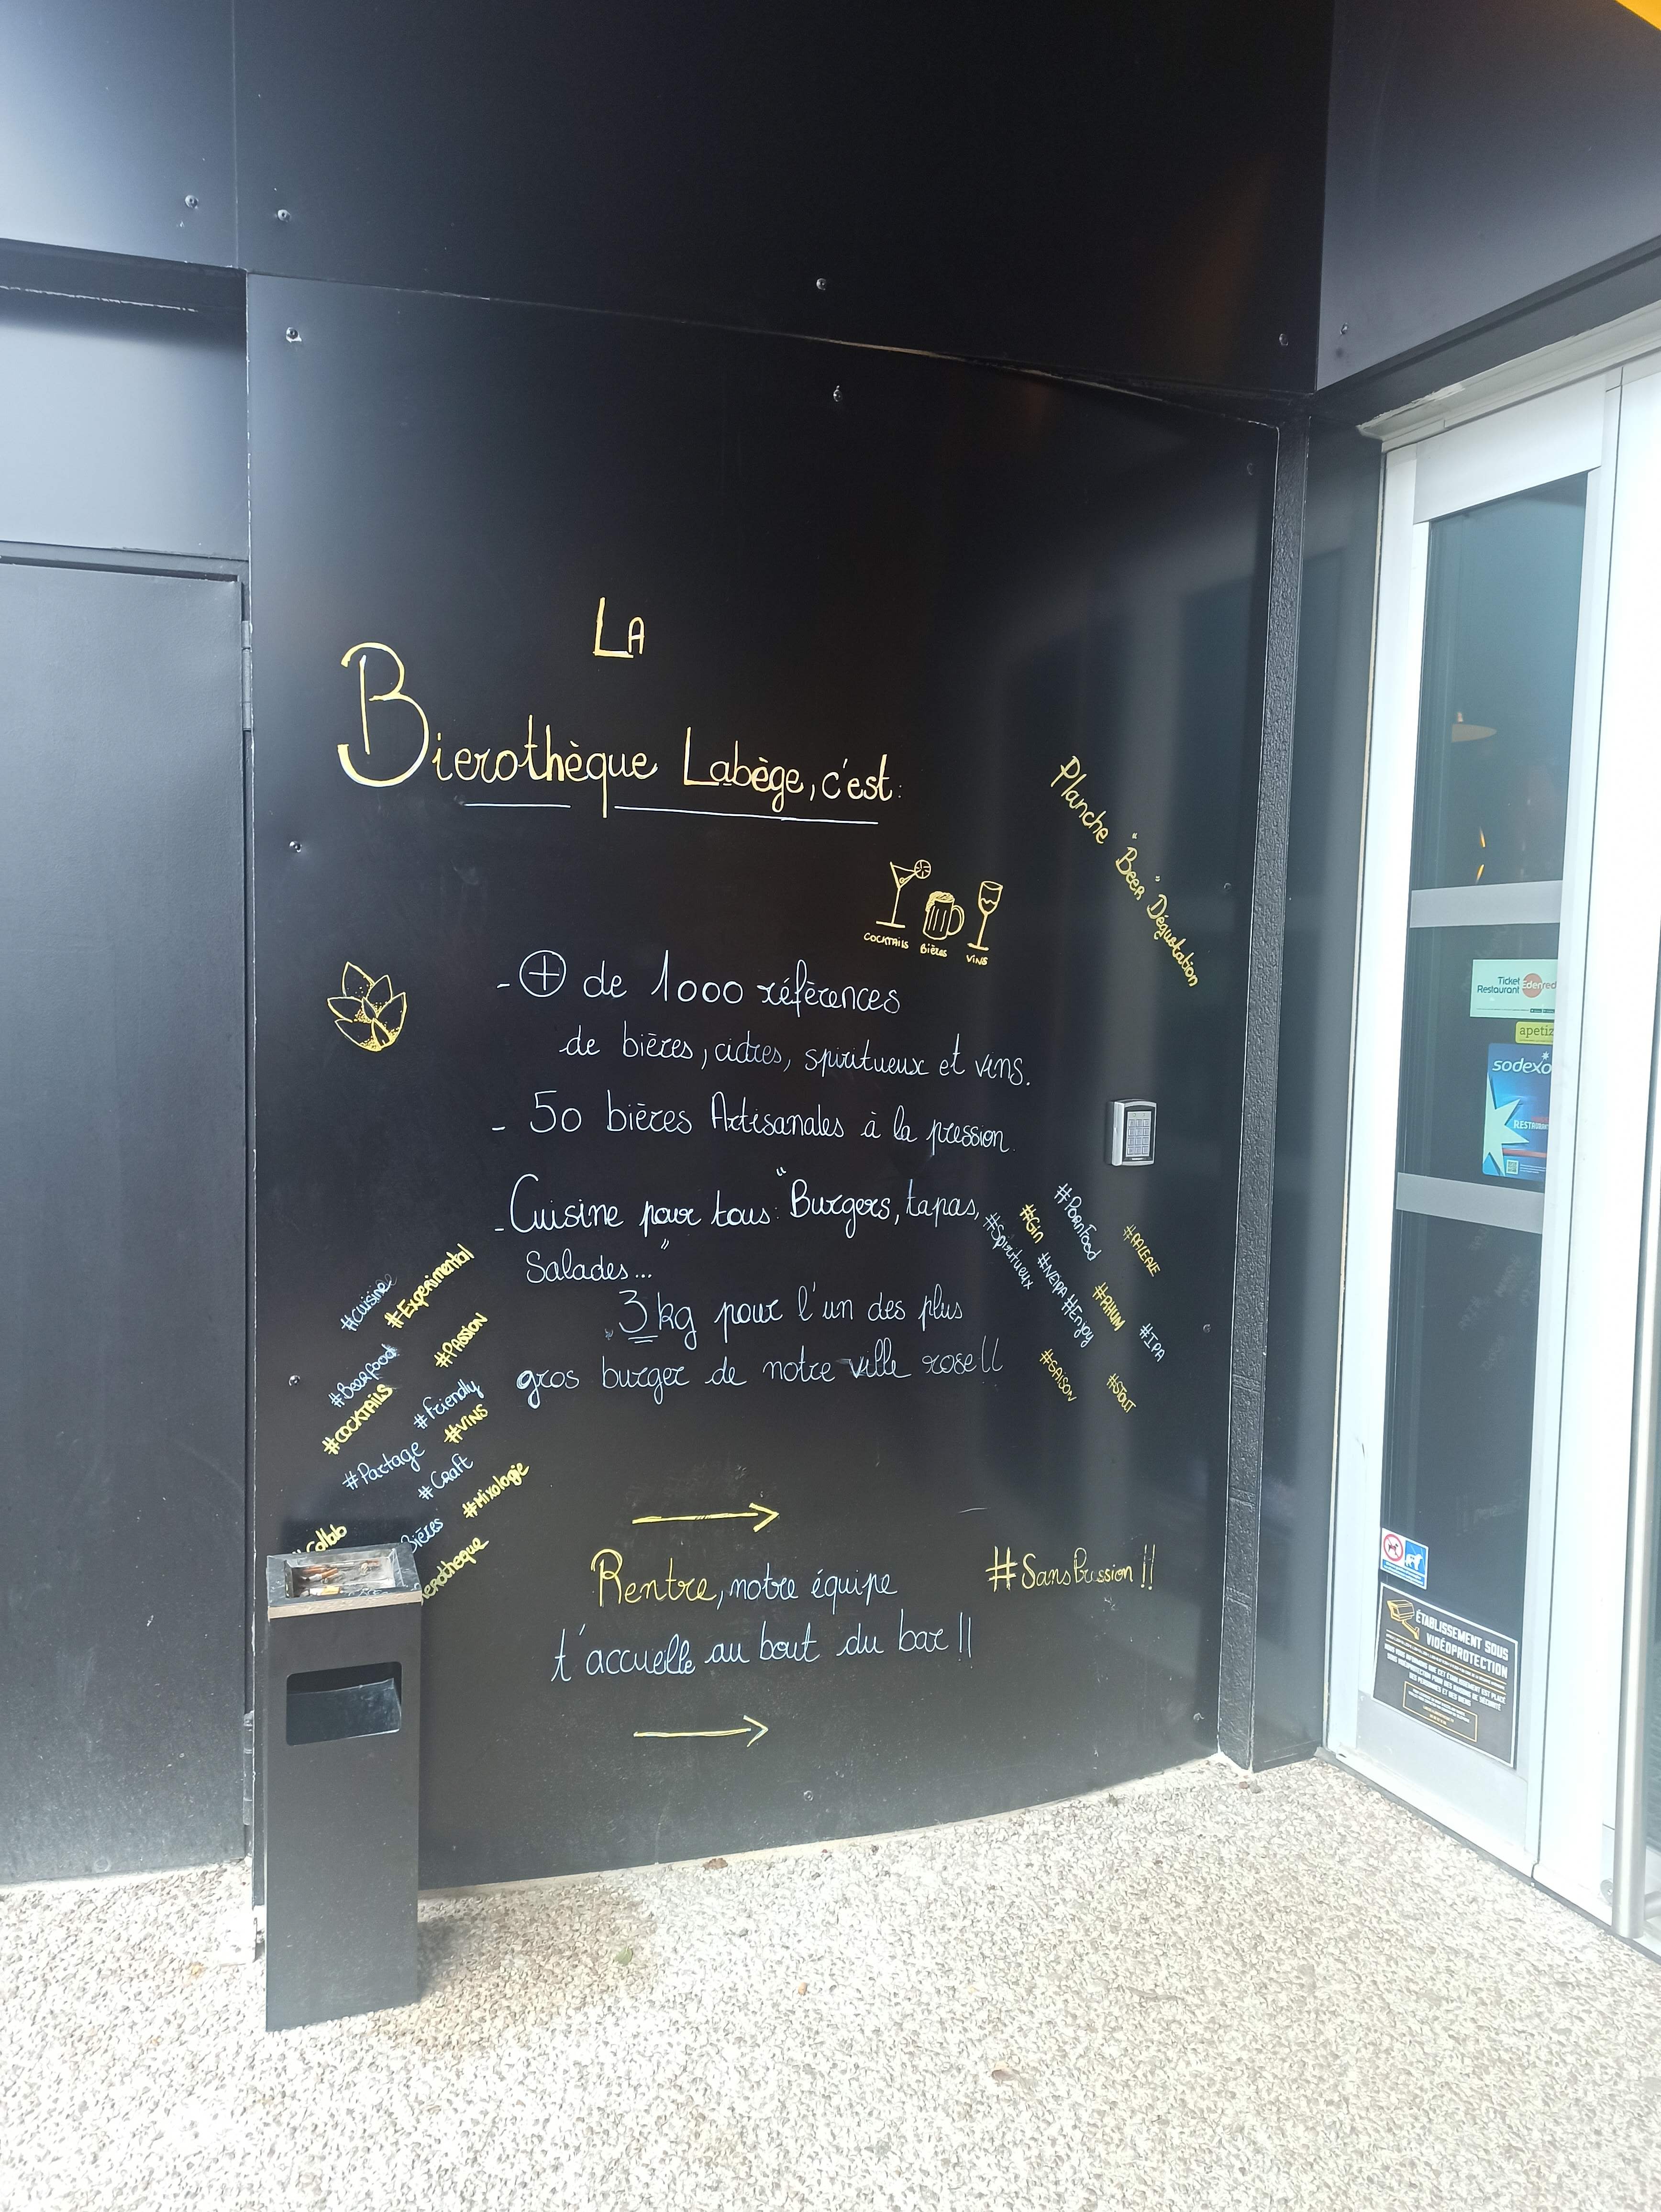 LA
Bierothèque Labège, c'est:
Planche "Beer" Dégustation
COCKTAILS Bières VINS
- + de 1000 références
de bières, cidres, spiritueux et vins.
- 50 bières Artisanales à la pression.
- Cuisine pour tous: "Burgers, tapas,
Salades..."
3kg pour l'un des plus
gros burger de notre ville rose!!
#cuisine
#Experimental
#PASSION
#Beerfood
#COCKTAILS
#Friendly
#VINS
#Partage
#Craft
#Mixologie
Collab
Bières
erotheque
#Spiritueux
#Gin
#PornFood
#PALEALE
#NEIPA #Enjoy
#RHUM
#IPA
#SAISON
#STOUT
Rentre, notre équipe
t'accuelle au bout du bar!!
#SansPression!!
Ticket
Restaurant Edenred
apetiz
sodexo
RESTAURANT
ÉTABLISSEMENT SOUS
VIDÉOPROTECTION